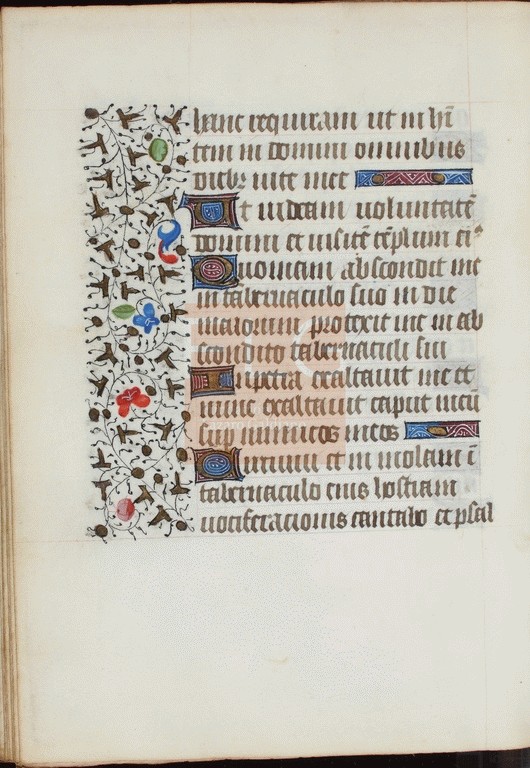 hanc requiram ut in hi
tem in domini omnibus
diebus vite mee
Ut videam voluntatē
domini et visitē tēplum eiꝰ
Quoniam abscondit me
in tabernaculo suo in die
malorum protexit me in ab
scondito tabernaculi sui
In petra exaltavit me et
nunc exaltavit caput meū
sup inimicos meos
Circuivi et immolavi ī
tabernaculo eius hostiam
vociferacionis cantabo et psal